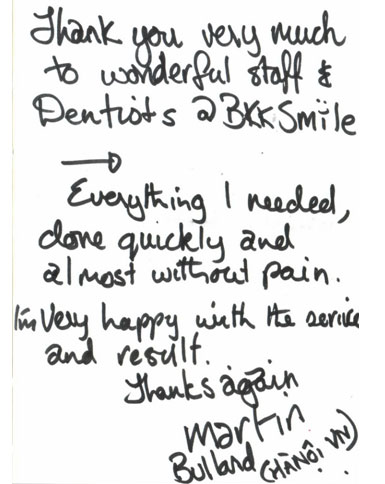 Thank you very much
to wonderful staff &
Dentists @ BKKSmile
→
Everything I needed,
done quickly and
almost without pain.
I'm Very happy with the service
and result.
Thanks again
Martin
Bulland (HÀNÔI VN)